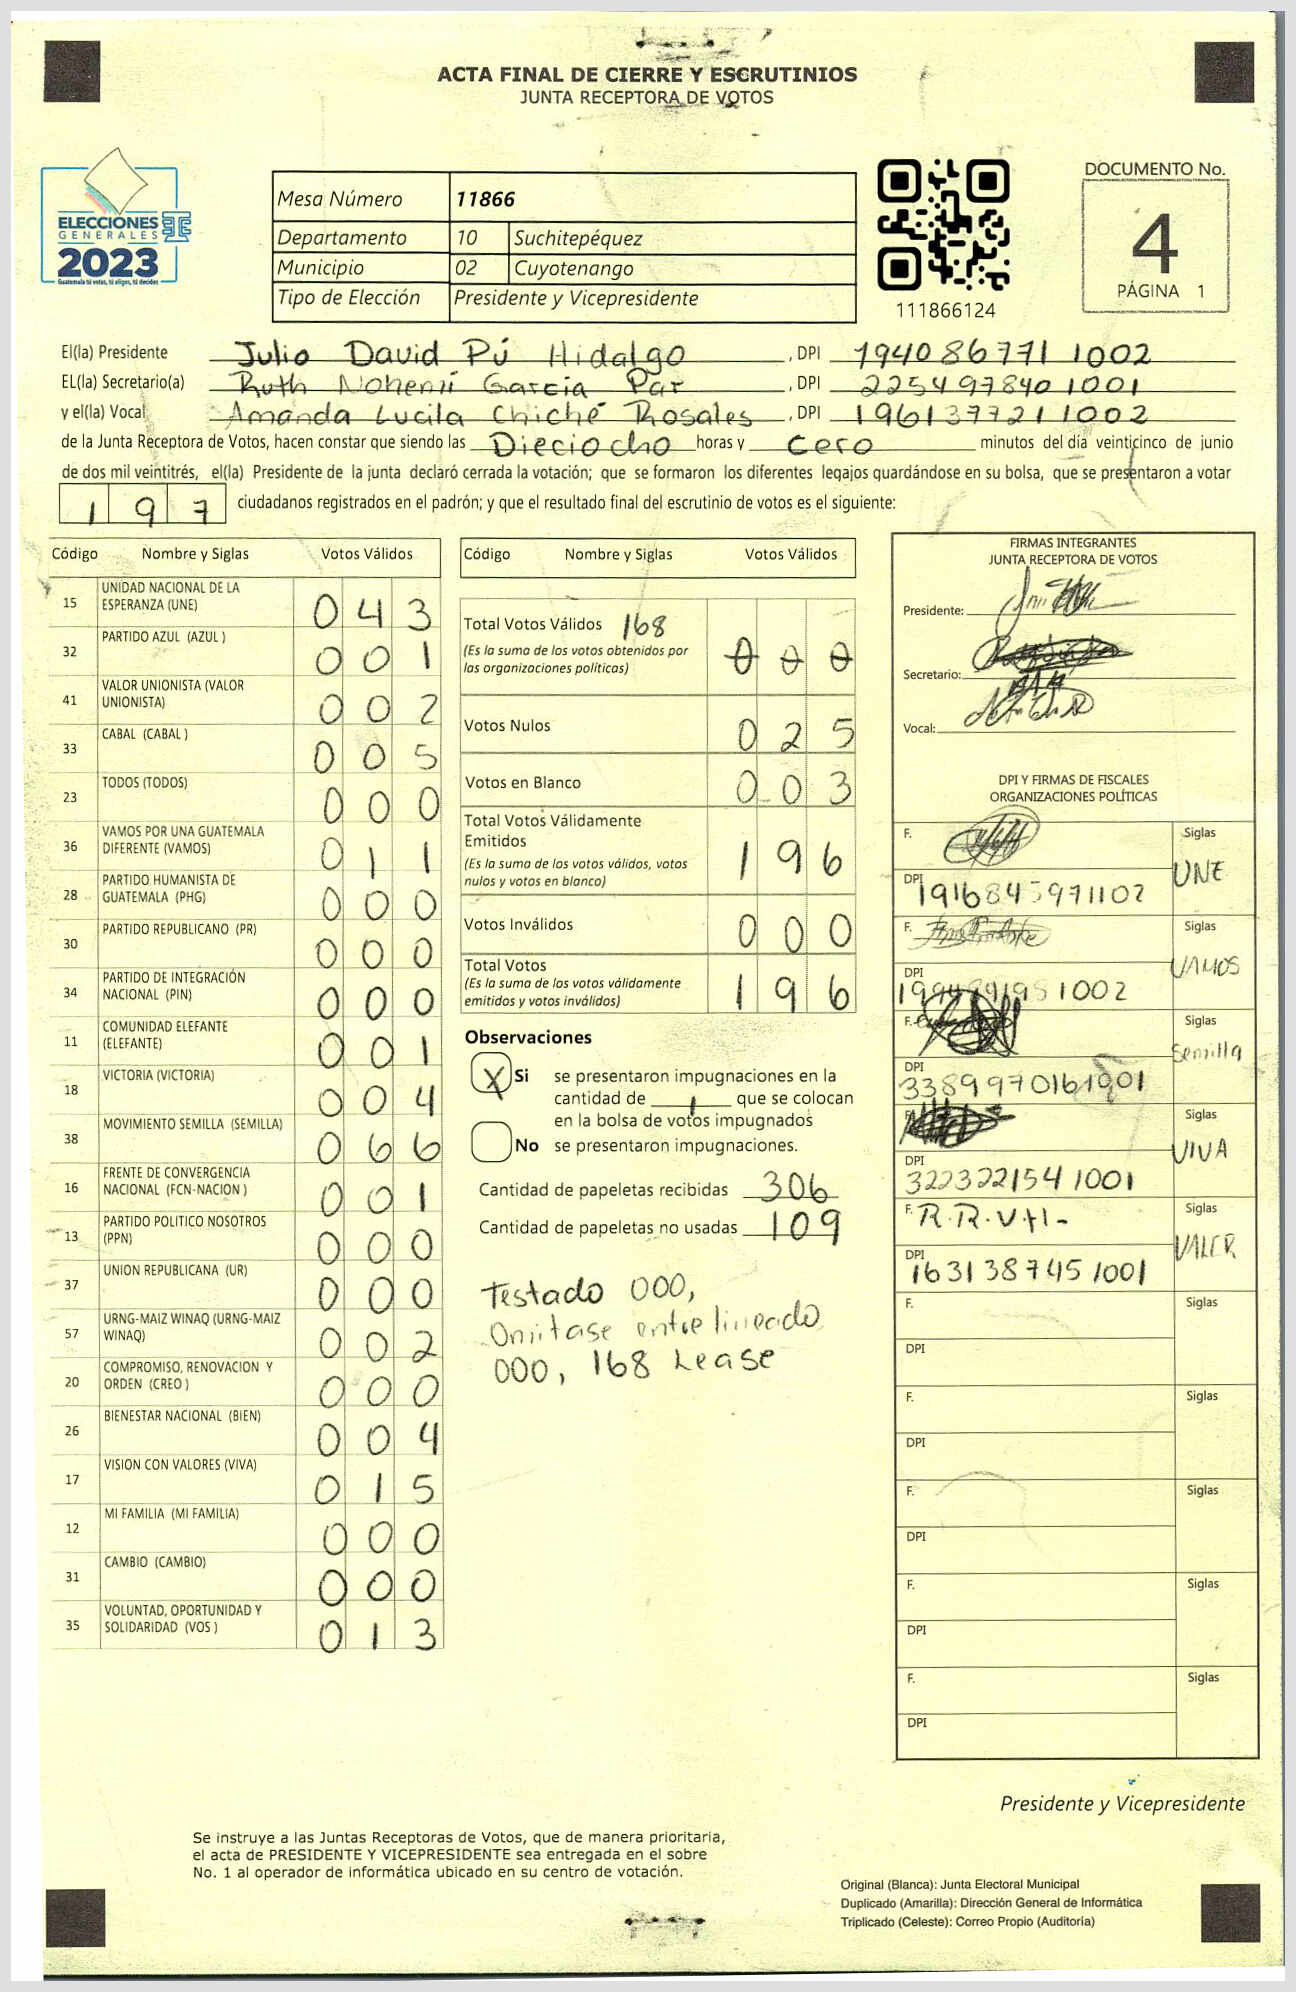 ACTA FINAL DE CIERRE Y ESCRUTINIOS
JUNTA RECEPTORA DE VOTOS
ELECCIONES
GENERALES
2023
Guatemala tú votas, tú eliges, tú decides
Mesa Número 11866
Departamento 10 Suchitepéquez
Municipio 02 Cuyotenango
Tipo de Elección Presidente y Vicepresidente
111866124
DOCUMENTO No.
4
PÁGINA 1
El(la) Presidente Julio David Pú Hidalgo , DPI 1940867711002
EL(la) Secretario(a) Ruth Nohemí Garcia Par , DPI 2254978401001
y el(la) Vocal Amanda Lucila Chiché Rosales , DPI 1961377211002
de la Junta Receptora de Votos, hacen constar que siendo las Dieciocho horas y Cero minutos del día veinticinco de junio
de dos mil veintitrés, el(la) Presidente de la junta declaró cerrada la votación; que se formaron los diferentes legajos quardándose en su bolsa, que se presentaron a votar
197 ciudadanos registrados en el padrón; y que el resultado final del escrutinio de votos es el siguiente:
Código Nombre y Siglas Votos Válidos
15 UNIDAD NACIONAL DE LA ESPERANZA (UNE) 043
32 PARTIDO AZUL (AZUL ) 001
41 VALOR UNIONISTA (VALOR UNIONISTA) 002
33 CABAL (CABAL ) 005
23 TODOS (TODOS) 000
36 VAMOS POR UNA GUATEMALA DIFERENTE (VAMOS) 011
28 PARTIDO HUMANISTA DE GUATEMALA (PHG) 000
30 PARTIDO REPUBLICANO (PR) 000
34 PARTIDO DE INTEGRACIÓN NACIONAL (PIN) 000
11 COMUNIDAD ELEFANTE (ELEFANTE) 001
18 VICTORIA (VICTORIA) 004
38 MOVIMIENTO SEMILLA (SEMILLA) 066
16 FRENTE DE CONVERGENCIA NACIONAL (FCN-NACION ) 001
13 PARTIDO POLITICO NOSOTROS (PPN) 000
37 UNION REPUBLICANA (UR) 000
57 URNG-MAIZ WINAQ (URNG-MAIZ WINAQ) 002
20 COMPROMISO, RENOVACION Y ORDEN (CREO ) 000
26 BIENESTAR NACIONAL (BIEN) 004
17 VISION CON VALORES (VIVA) 015
12 MI FAMILIA (MI FAMILIA) 000
31 CAMBIO (CAMBIO) 000
35 VOLUNTAD, OPORTUNIDAD Y SOLIDARIDAD (VOS ) 013
Código Nombre y Siglas Votos Válidos
Total Votos Válidos 168
(Es la suma de los votos obtenidos por las organizaciones políticas) 000
Votos Nulos 025
Votos en Blanco 003
Total Votos Válidamente Emitidos
(Es la suma de los votos válidos, votos nulos y votos en blanco) 196
Votos Inválidos 000
Total Votos
(Es la suma de los votos válidamente emitidos y votos inválidos) 196
Observaciones
X Si se presentaron impugnaciones en la
cantidad de 1 que se colocan
en la bolsa de votos impugnados
No se presentaron impugnaciones.
Cantidad de papeletas recibidas 306
Cantidad de papeletas no usadas 109
Testado 000,
Omitase entrelineado
000, 168 Lease
FIRMAS INTEGRANTES
JUNTA RECEPTORA DE VOTOS
Presidente:
Secretario:
Vocal:
DPI Y FIRMAS DE FISCALES
ORGANIZACIONES POLÍTICAS
F. Siglas UNE
DPI 1916845971102
F. Siglas VAMOS
DPI
F. Siglas Semilla
DPI
F. Siglas VIVA
DPI 3223221541001
F. R.R.V.H- Siglas
DPI 1631387451001
F. Siglas
DPI
F. Siglas
DPI
F. Siglas
DPI
F. Siglas
DPI
F. Siglas
DPI
Presidente y Vicepresidente
Se instruye a las Juntas Receptoras de Votos, que de manera prioritaria,
el acta de PRESIDENTE Y VICEPRESIDENTE sea entregada en el sobre
No. 1 al operador de informática ubicado en su centro de votación.
Original (Blanca): Junta Electoral Municipal
Duplicado (Amarilla): Dirección General de Informática
Triplicado (Celeste): Correo Propio (Auditoría)